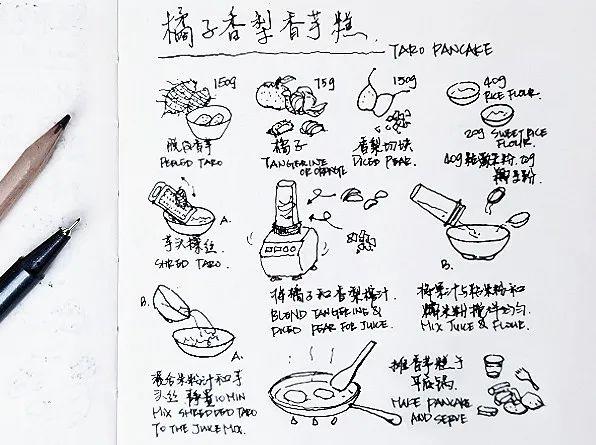 橘子香梨香芋糕.
TARO PANCAKE
150g
脱皮香芋
PEELED TARO
75g
橘子
TANGERINE
OR ORANGE
150g
香梨切块
DICED PEAR.
40g
RICE FLOUR.
20g SWEET RICE
FLOUR.
40g粘米粉.20g
糯米粉.
A.
芋头擦丝
SHRED TARO.
将橘子和香梨榨汁.
BLEND TANGERINE &
DICED PEAR FOR JUICE.
B.
将果汁与粘米粉和
糯米粉搅拌均匀.
MIX JUICE & FLOUR.
B.
A.
混合米粉汁和芋
头丝 静置10MIN
MIX SHREDDED TARO
TO THE JUICE MIX.
摊香芋糕于
平底锅.
MAKE PANCAKE
AND SERVE